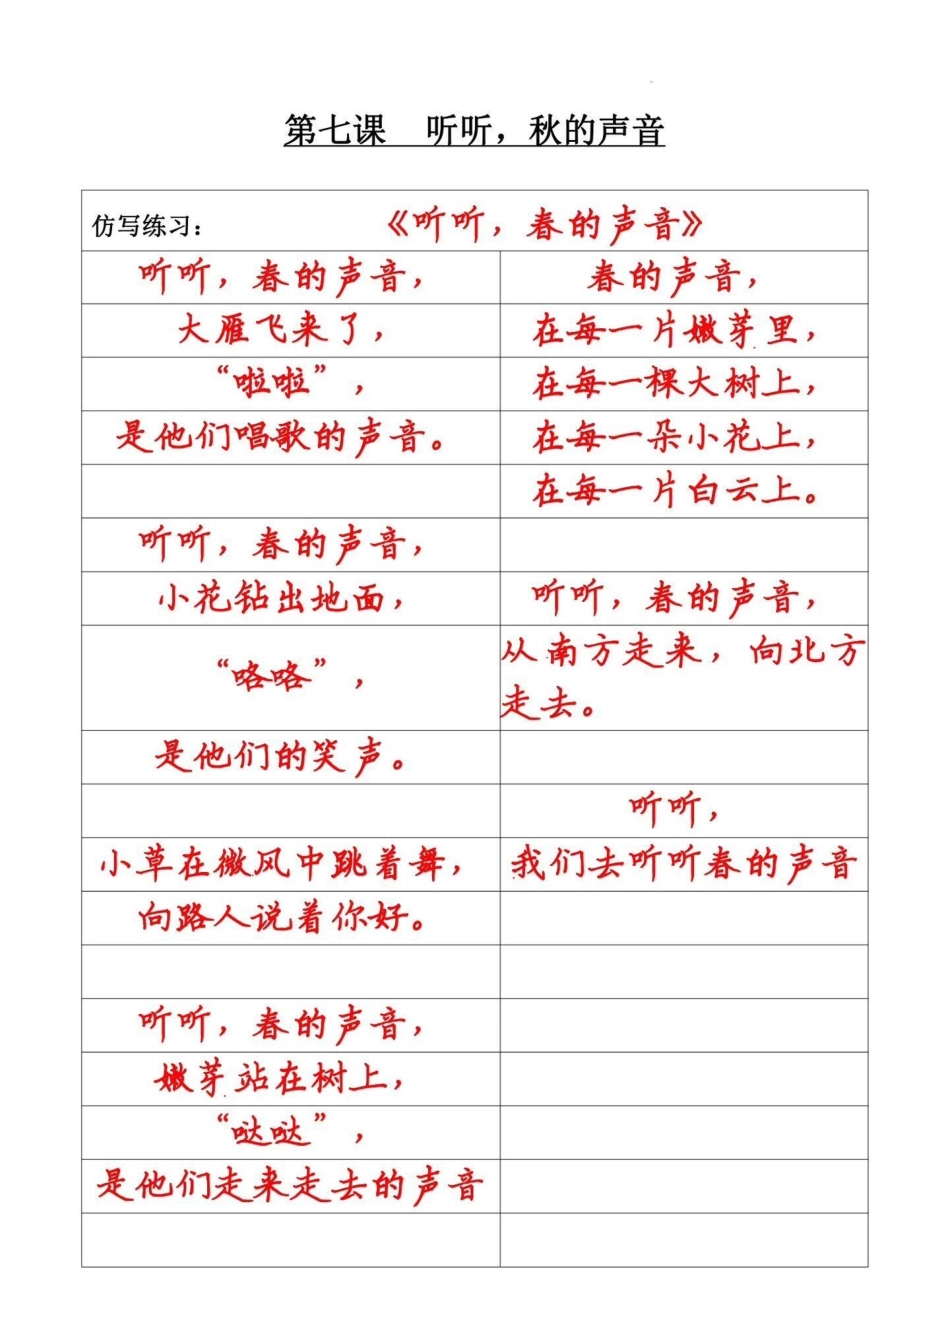 第七课 听听，秋的声音
仿写练习： 《听听，春的声音》
听听，春的声音，
大雁飞来了，
“啦啦”，
是他们唱歌的声音。
听听，春的声音，
小花钻出地面，
“咯咯”，
是他们的笑声。
小草在微风中跳着舞，
向路人说着你好。
听听，春的声音，
嫩芽站在树上，
“哒哒”，
是他们走来走去的声音
春的声音，
在每一片嫩芽里，
在每一棵大树上，
在每一朵小花上，
在每一片白云上。
听听，春的声音，
从南方走来，向北方
走去。
听听，
我们去听听春的声音